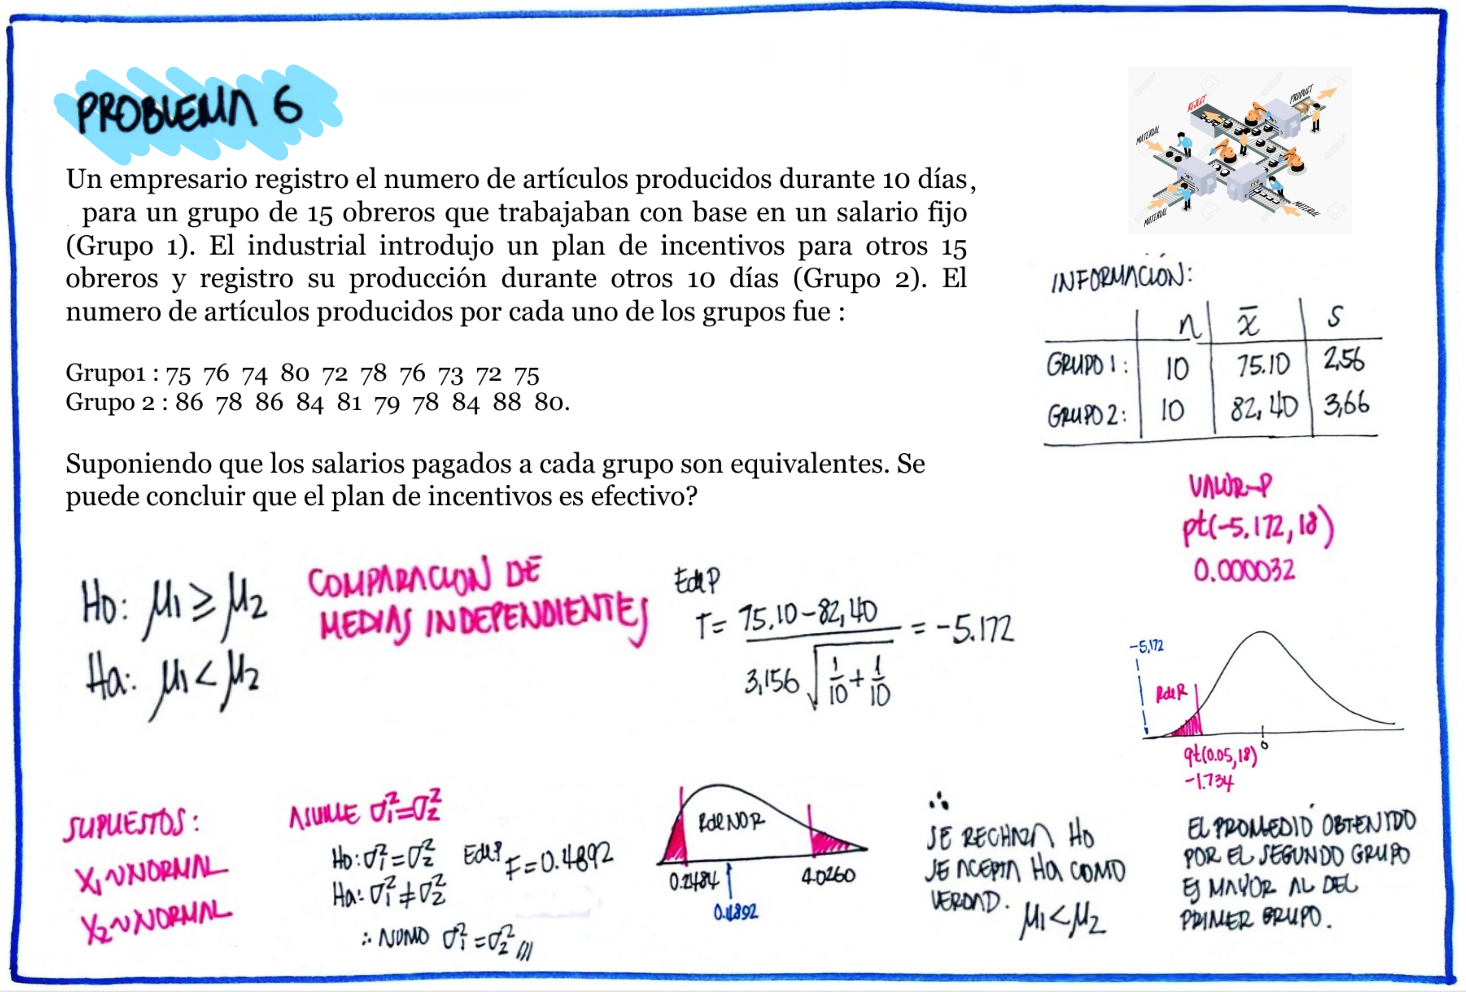 PROBLEMA 6
Un empresario registro el numero de artículos producidos durante 10 días,
para un grupo de 15 obreros que trabajaban con base en un salario fijo
(Grupo 1). El industrial introdujo un plan de incentivos para otros 15
obreros y registro su producción durante otros 10 días (Grupo 2). El
numero de artículos producidos por cada uno de los grupos fue :
Grupo1 : 75 76 74 80 72 78 76 73 72 75
Grupo 2 : 86 78 86 84 81 79 78 84 88 80.
Suponiendo que los salarios pagados a cada grupo son equivalentes. Se
puede concluir que el plan de incentivos es efectivo?
REJECT
PRODUCT
MATERIAL
MATERIAL
MATERIAL
INFORMACIÓN:
n x̅ S
GRUPO 1: 10 75.10 2,56
GRUPO 2: 10 82,40 3,66
VALOR-P
pt(-5.172, 18)
0.000032
Ho: μ1 ≥ μ2
Ha: μ1 < μ2
COMPARACION DE
MEDIAS INDEPENDIENTES
EdeP
T = 75.10 - 82,40 / 3,156 √(1/10 + 1/10) = -5.172
-5,172
RdeR
0
qt(0.05, 18)
-1.734
SUPUESTOS:
X1 ~ NORMAL
X2 ~ NORMAL
ASUME σ1² = σ2²
Ho: σ1² = σ2²
Ha: σ1² ≠ σ2²
EdeP
F = 0.4892
∴ NORNO σ1² = σ2² ///
RdeNOR
0.2484
4.0260
0.4892
∴
SE RECHAZA Ho
SE ACEPTA Ha COMO
VERDAD. μ1 < μ2
EL PROMEDIO OBTENIDO
POR EL SEGUNDO GRUPO
ES MAYOR AL DEL
PRIMER GRUPO.